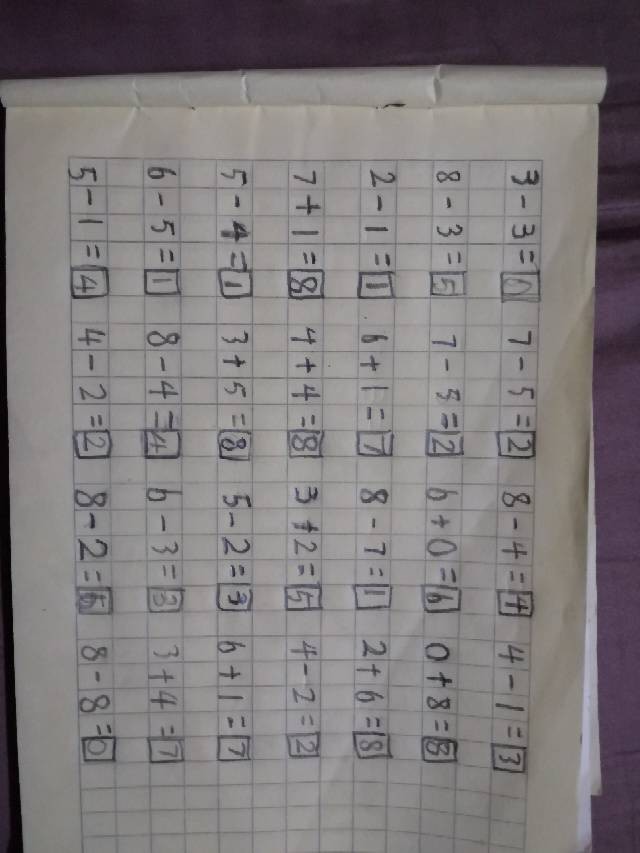 3-3=0 7-5=2 8-4=4 4-1=3
8-3=5 7-5=2 6+0=6 0+8=8
2-1=1 6+1=7 8-7=1 2+6=8
7+1=8 4+4=8 3+2=5 4-2=2
5-4=1 3+5=8 5-2=3 6+1=7
6-5=1 8-4=4 6-3=3 3+4=7
5-1=4 4-2=2 8-2=6 8-8=0